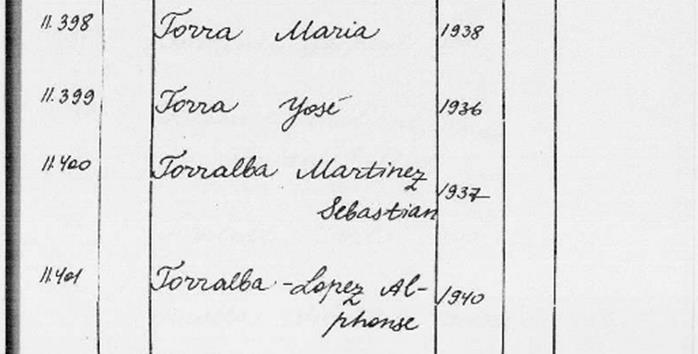 11.398 Torra Maria 1938
11.399 Torra Yosé 1936
11.400 Torralba Martinez 1937
Sebastian
11.401 Torralba-Lopez Al- 1940
phonse